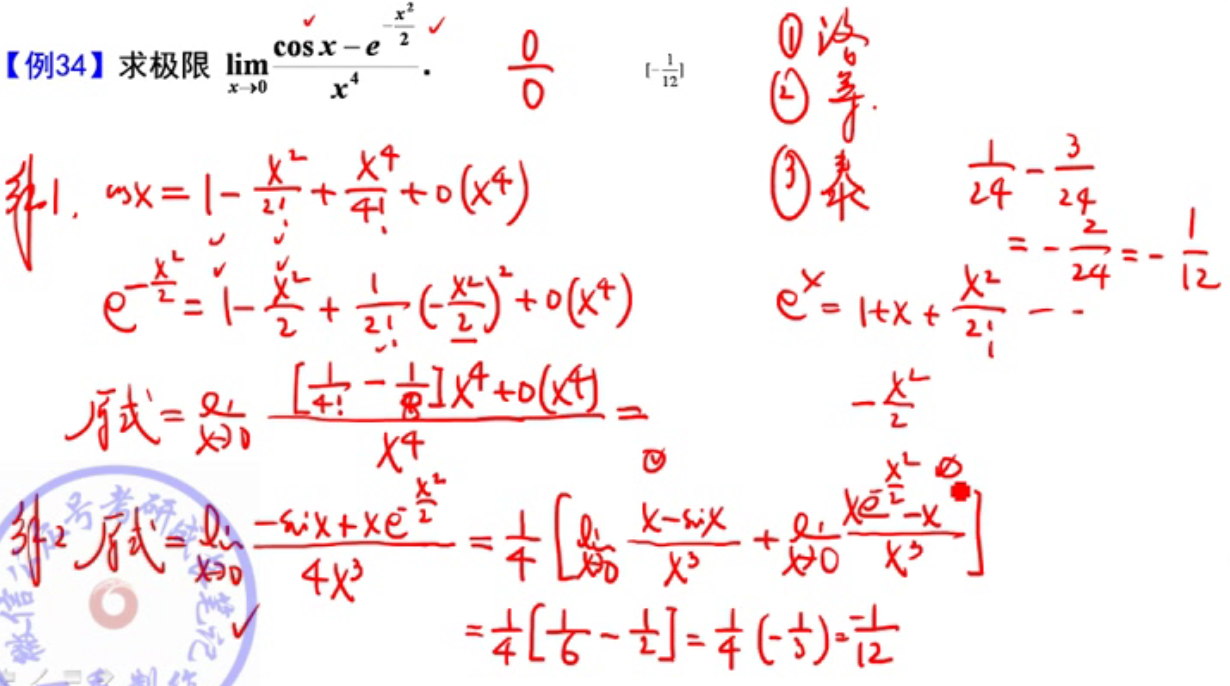 【例34】求极限 lim_{x→0} (cos x − e^{−x²/2}) / x⁴ . 0/0 [−1/12]
① 洛
② 等.
③ 泰
1/24 − 3/24
= −2/24 = −1/12
解1. cosx = 1 − x²/2! + x⁴/4! + o(x⁴)
e^{−x²/2} = 1 − x²/2 + 1/2! (−x²/2)² + o(x⁴)
e^x = 1+x+ x²/2! - -
−x²/2
原式 = lim_{x→0} ([1/4! − 1/8]x⁴ + o(x⁴)) / x⁴ =
解2 原式 = lim_{x→0} (−sinx + xe^{−x²/2}) / 4x³ = 1/4 [lim_{x→0} (x−sinx)/x³ + lim_{x→0} (xe^{−x²/2} − x)/x³]
= 1/4 [1/6 − 1/2] = 1/4 (−1/3) = −1/12